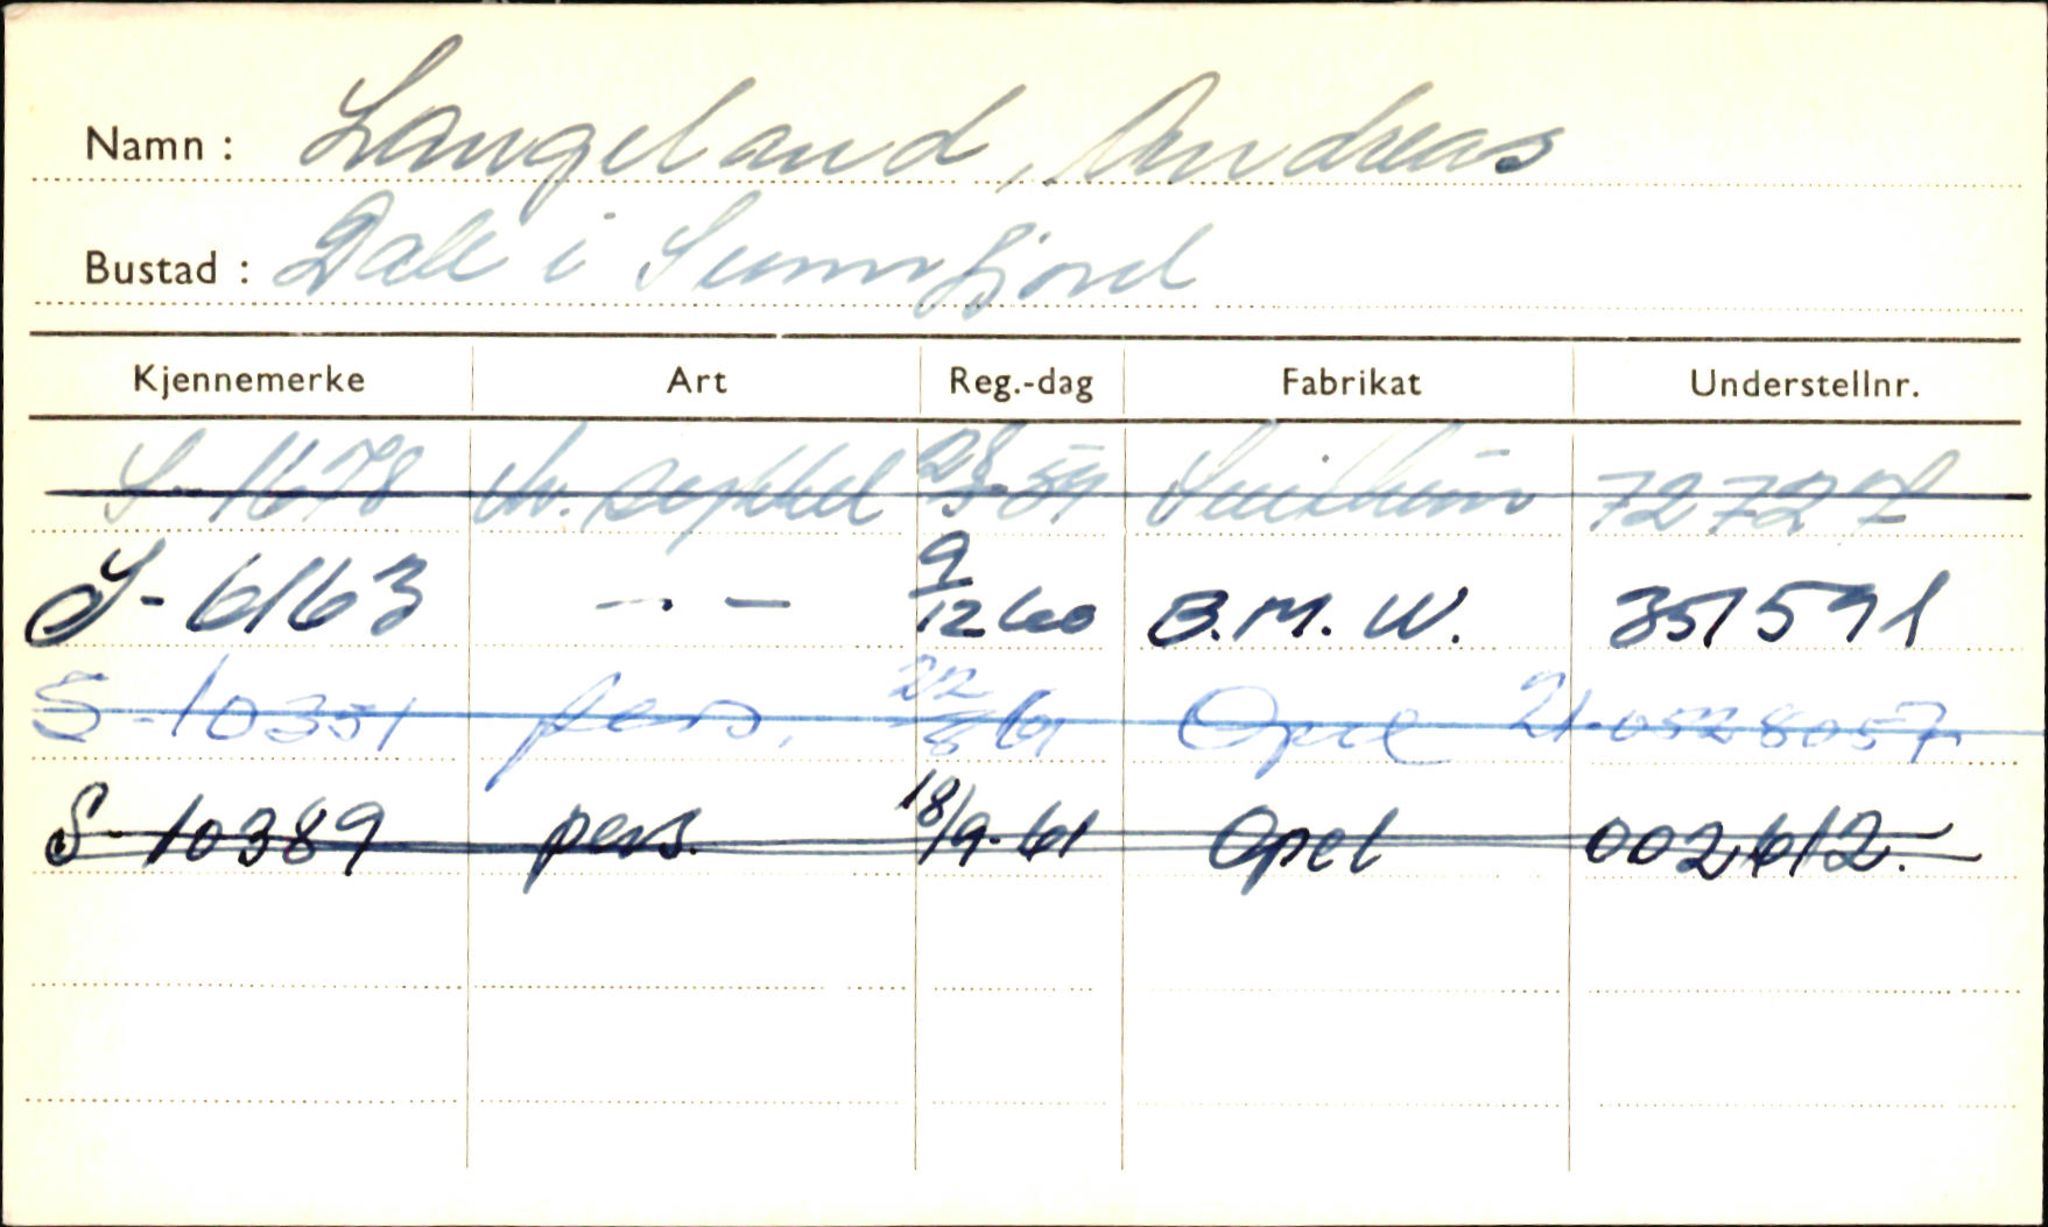 Namn : Langeland, Andreas
Bustad : Dale i Sunnfjord
Kjennemerke Art Reg.-dag Fabrikat Understellnr.
S-1678 M. sykkel 28/5-59 72727
S-6163 - . - 9/12 60 B.M.W. 351591
S-10351 pers. 22/8 61 Opel 21-0528057
S-10389 pers. 18/9-61 Opel 002612.-